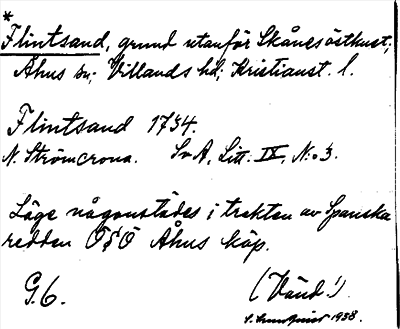 *
Flintsand, grund utanför Skånes östkust,
Åhus sn; Villands hd; Kristianst. l.
Flintsand 1734.
N. Strömcrona. SvA, Litt. IX, N:o 3.
Läge någonstädes i trakten av Spanska
redden ÖSÖ Åhus köp.
G6.
(Vänd!)
1938.